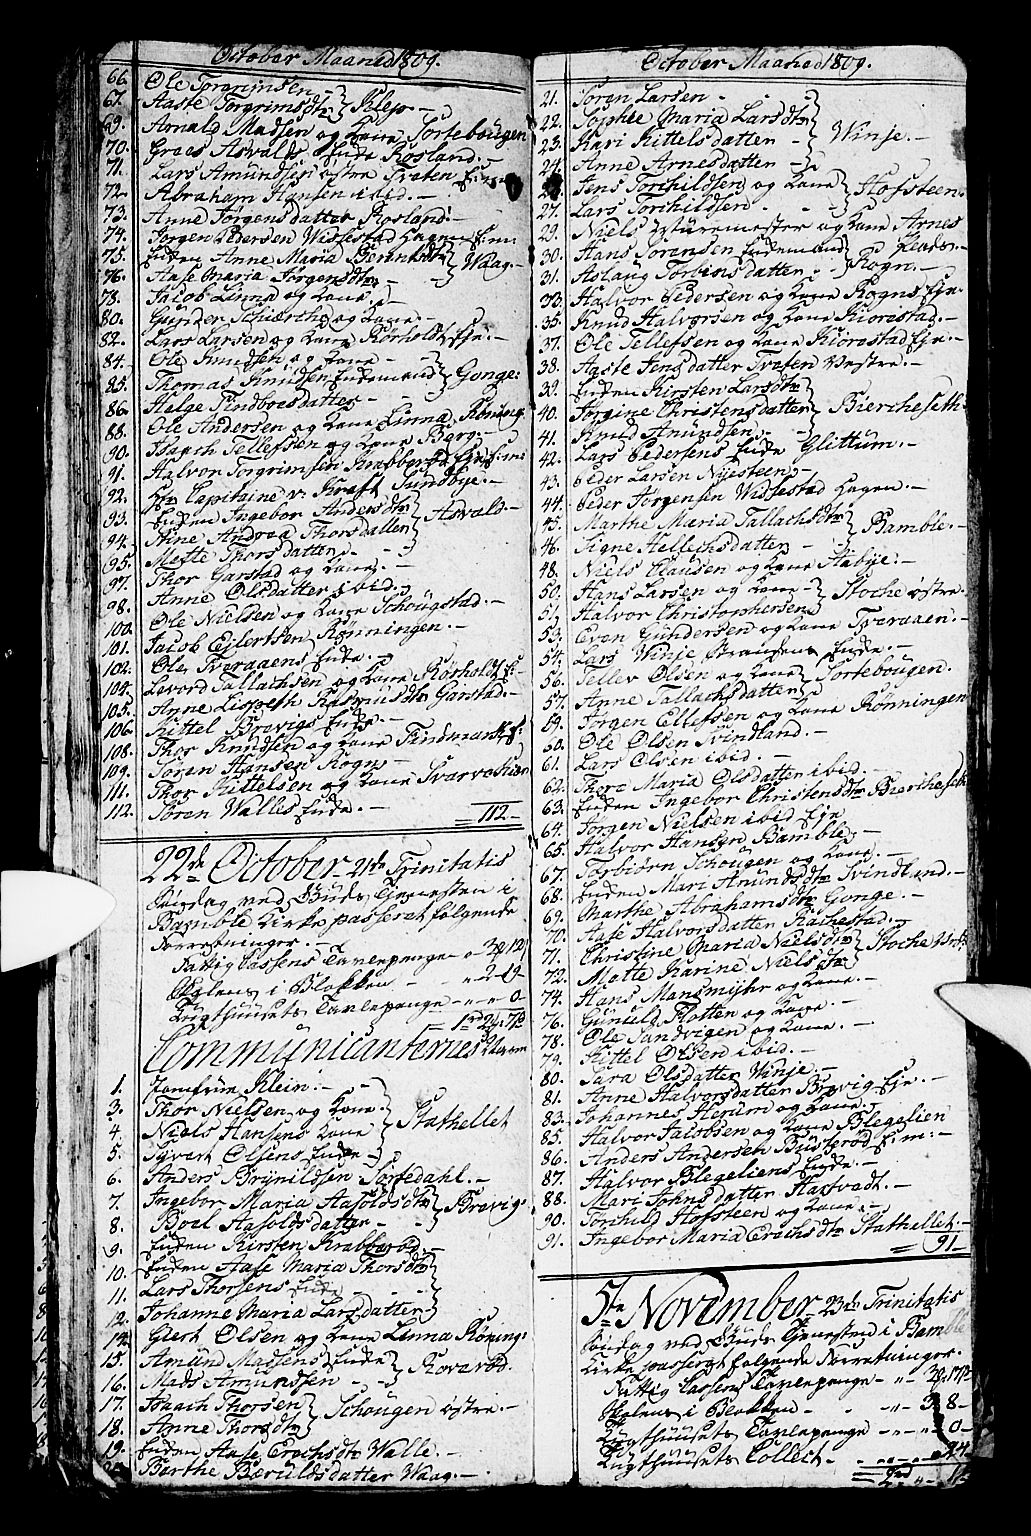 October Maaned 1809.
66. Ole Torgrimsen
67. Aaste Torgrimsdtr Klep
69. Arnold Madsen og Kone Tortebougen
70. Groes Asvalds Enke Rosland.
71. Lars Amundsen østre Tvæten
72. Abraham Hansen ibid.
73. Anne Jørgensdatter Rosland
74. Jørgen Pedersen Wissestad Hagene
75. Enken Anne Maria Berentsdtr Waag.
76. Aase Maria Jørgensdtr
78. Jacob Linna og Kone
80. Gunder Schiærthe og Kone
82. Lars Larsen og Kone Rørholdt Eje.
84. Ole Knudsen og Kone
85. Thomas Knudsen Enkemand Gonge
86. Helge Findboesdatter
88. Ole Andersen og Kone Linna Rønning
90. Isaach Tellefsen og Kone Berg.
91. Halvor Torgrimsen Krabberød
92. Hr. Capitaine v. Kraft Sundbye.
93. Enken Ingebor Andersdtr Asvald
94. Thine Andrea Thorsdatter
95. Mette Thorsdatter
97. Thor Garstad og Kone
98. Anne Olsdatter ibid.
100. Ole Nielsen og Kone Schougstad.
101. Jacob Ejlertsen Rønningen.
102. Ole Tveraaens Enke.
104. Levord Tallachsen og Kone Rørholdt
105. Anne Lisbeth Rasmusdtr Garstad.
106. Kittel Brevigs Enke.
108. Thor Knudsen og Kone Findmark
109. Søren Hansen Rogn
111. Thor Kittelsen og Kone
112. Søren Walles Enke.
112
22de October 21de Trinitatis
Søndag ved Guds Tjenesten i
Bamble Kirke passeret følgende
Forretninger.
Fattig Cassens Tavlepenge
i Blokken
Tugthuusets Tavlepenge 0
Communicanternes
1. Jomfrue Klein.
3. Thor Nielsen og Kone Stathellet
4. Niels Hansens Kone
5. Syvert Olsens Enke
6. Anders Brynildsen Tortedahl.
7. Ingebor Maria Aasoldsdtr Brevig
8. Boel Aasoldsdatter
9. Enken Kirsten Krabberød
10. Enken Aase Maria Thorsdtr
11. Lars Thorsens Enke
12. Johanne Maria Larsdatter
14. Giert Olsen og Kone Linna Rønning
15. Amund Madsens Enke Rovarød.
16. Mads Amundsen
17. Isaach Thorsen Schougen østre.
18. Anne Thorsdtr
19. Enken Aase Erochsdtr Walle.
20. Barthe Bæruldsdatter Waag.
October Maaned 1809.
21. Søren Larsen
22. Sophie Maria Larsdtr Winje.
23. Kari Kittelsdatter
24. Anne Arnesdatter
Jens Torchildsen og Kone Hofsteen.
27. Lars Torchildsen
29. Niels Stüremester og Kone Arnes
30. Hans Sørensen Enkemand Rogn.
31. Aslaug Torbinsdatter
33. Halvor Pedersen og Kone Rogns Eje.
35. Knud Halvorsen og Kone Kiorestad.
37. Ole Tellefsen og Kone Kiorestad Eje.
38. Aaste Jensdatter Tvæten Vestre.
39. Enken Kirsten Larsdtr
40. Jørgine Christensdatter Biercheseth
41. Knud Amundsen
42. Lars Pedersens Enke Glittum.
43. Peder Larsen Nyesteen
44. Peder Jørgensen Wissestad Hagen.
45. Marthe Maria Tallachsdtr Bamble.
46. Signe Hellechsdatter
48. Niels Clausen og Kone Stabye.
50. Hans Larsen og Kone Stoche østre
51. Halvor Christophersen
53. Even Gundersen og Kone Tveraaen.
54. Lars Winje Strandens Enke.
56. Tellev Olsen og Kone Tortebougen.
57. Anne Tallachsdatter
59. Jørgen Ellefsen og Kone Rønningen
60. Ole Olsen Tvindland.
61. Lars Olsen ibid.
62. Thore Maria Olsdatter ibid
63. Enken Ingebor Christensdtr Biercheseth
64. Jørgen Nielsen ibid Eje
65. Halvor Hansen Bamble.
67. Torbiørn Schougen og Kone.
68. Enken Mari Amundsdtr Tvindland.
69. Marthe Abrahamsdtr Gonge.
70. Aase Halvorsdatter Rachestad.
71. Christine Maria Nielsdtr Stoche
72. Mette Karine Nielsdtr
74. Hans Mansmyhr og Kone.
76. Gunuld Plotten og Kone
78. Ole Sandvigen og Kone.
79. Kittel Olsen ibid.
80. Sara Olsdatter Winje.
81. Anne Halvorsdatter Brevig Eje.
83. Johannes Herum og Kone.
85. Halvor Jacobsen og Kone Blegelien
86. Anders Andersen
87. Halvor Blegeliens Enke.
88. Mari Johnsdatter Hasvadt.
90. Torchild Hofsteen og Kone.
91. Ingebor Maria Erochsdtr Stathellet.
91
5te November 23de Trinitatis
Søndag ved Guds Tjenesten i Bamble
Kirke passeret følgende Forretninger.
Fattig Cassens Tavlepenge
i Blokken 3 8
Tugthuusets Tavlepenge 0
Tugthuusets Collect 24